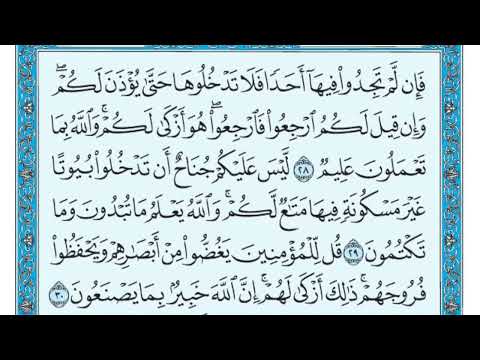 فَإِن لَّمْ تَجِدُوا۟ فِيهَآ أَحَدًا فَلَا تَدْخُلُوهَا حَتَّىٰ يُؤْذَنَ لَكُمْ ۖ
وَإِن قِيلَ لَكُمُ ٱرْجِعُوا۟ فَٱرْجِعُوا۟ ۖ هُوَ أَزْكَىٰ لَكُمْ ۚ وَٱللَّهُ بِمَا
تَعْمَلُونَ عَلِيمٌ ٢٨ لَّيْسَ عَلَيْكُمْ جُنَاحٌ أَن تَدْخُلُوا۟ بُيُوتًا
غَيْرَ مَسْكُونَةٍ فِيهَا مَتَـٰعٌ لَّكُمْ ۚ وَٱللَّهُ يَعْلَمُ مَا تُبْدُونَ وَمَا
تَكْتُمُونَ ٢٩ قُل لِّلْمُؤْمِنِينَ يَغُضُّوا۟ مِنْ أَبْصَـٰرِهِمْ وَيَحْفَظُوا۟
فُرُوجَهُمْ ۚ ذَٰلِكَ أَزْكَىٰ لَهُمْ ۗ إِنَّ ٱللَّهَ خَبِيرٌۢ بِمَا يَصْنَعُونَ ٣٠